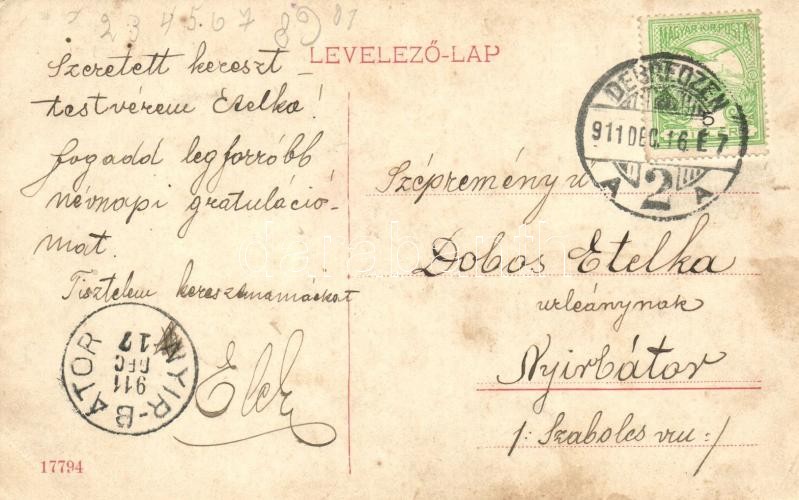 2 3 4 5 6 7 8 9
LEVELEZŐ-LAP
Szeretett kereszt-
testvérem Etelka!
fogadd legforróbb
névnapi gratuláció-
mat.
Tisztelem keresztmamáékat
MAGYAR KIR. POSTA
DEBRECZEN
911 DEC. 16 E 7
A 2 A
Szépreményű
Dobos Etelka
urleánynak
Nyirbátor
/: Szabolcs vm :/
NYIR-BÁTOR
911
DEC
17
17794